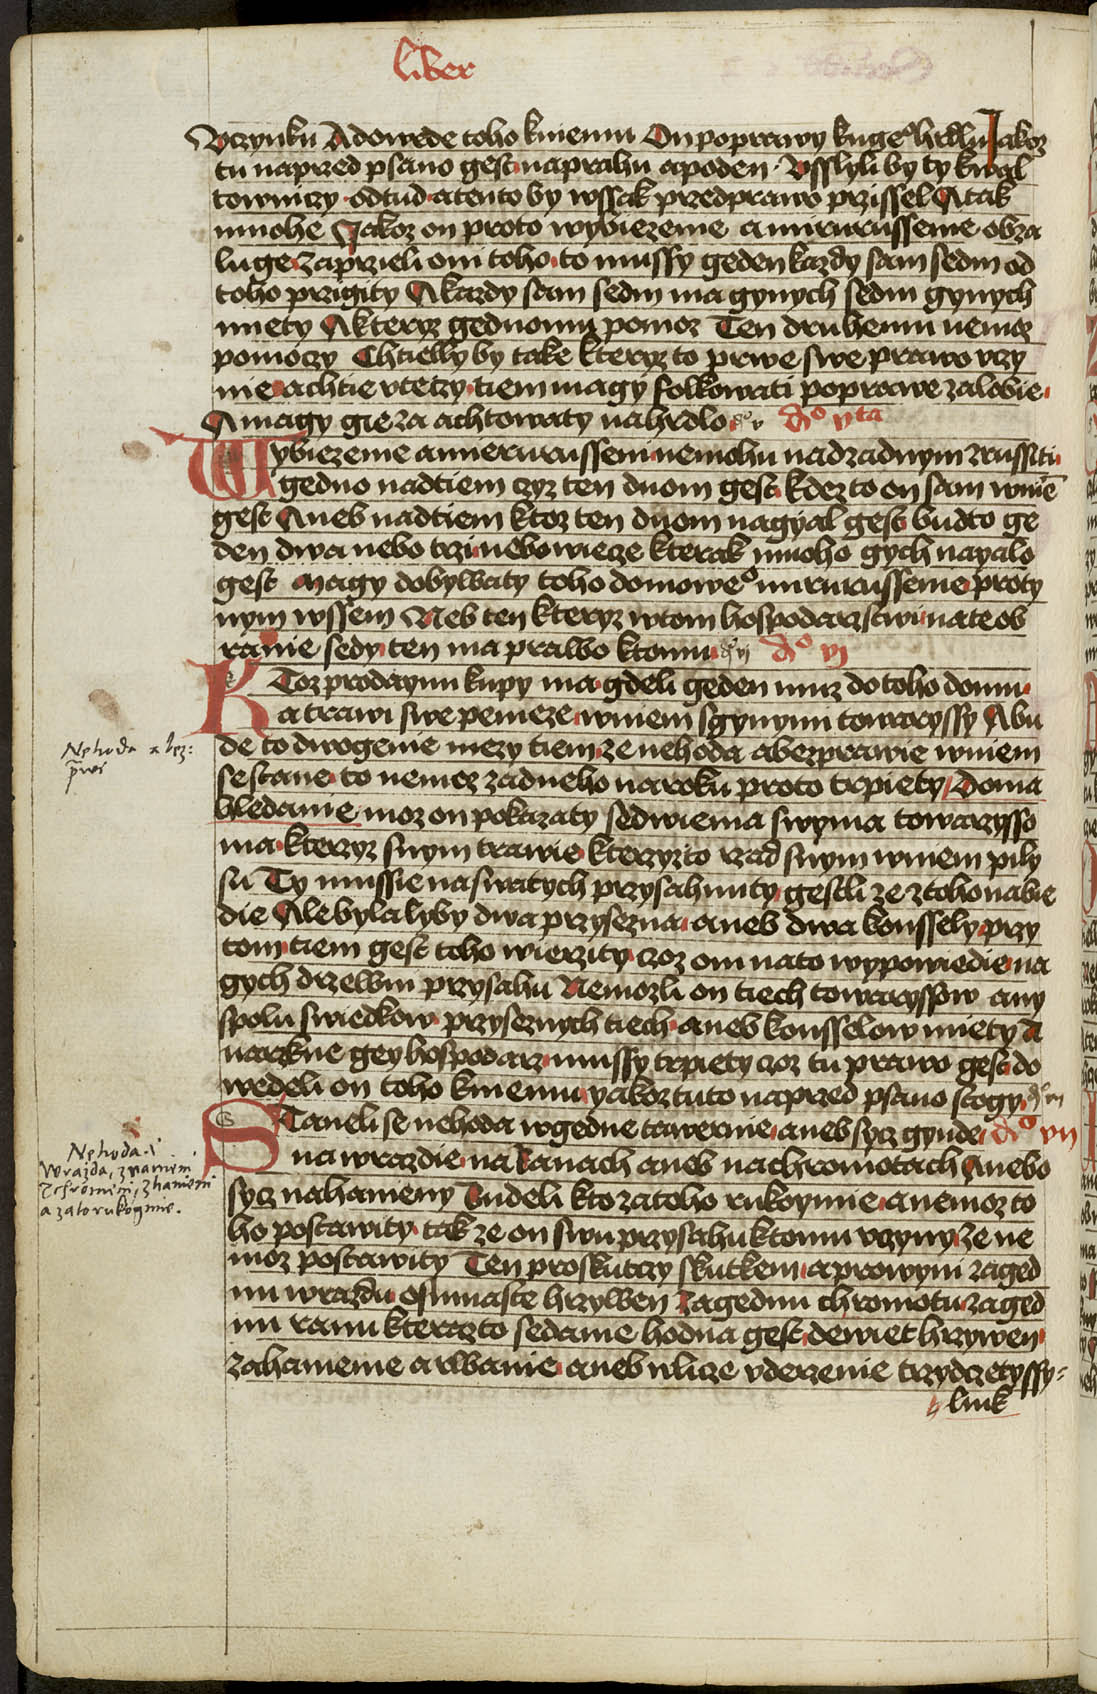 liber
Vczynku A dowede toho k niemu On poprawy k nge° hrdlu Jakoz
tu naprzed psano gest na prahu a poden Vssyli by ty kwal
towniczy odtud a tento by wssak przed prawo przissel A tak
mnohe Jakoz on proto wybiezenie a mirurussenie obza
luge Zaprzieli oni toho to mussy geden kazdy sam sedm od
toho przigity A kazdy sam sedm ma gynych sedm gynych
miety A kteryz gednomu pomoz Ten druhemu nemoz
pomoczy Chtielly by take kteryz to prwe swe prawo vczy
nie a chtie vteczy tiem magy folkowati poprawe zalobie
A magy gie za achtowaty na hrdlo d° v A° vta
Wybiezenie a mierurussenie nemohu nad zadnym zrussiti
gedno nad tiem czyz ten duom gest kdez to on sam wnie
gest Aneb nad tiem ktoz ten duom nagyal gest bud to ge
den dwa nebo trzi nebo wiecze kterak mnoho gych nayalo
gest Magy dobywaty toho domowe° mirurussenie proty
nym wssem Neb ten kteryz w tom hospodarzstwi nate ob
ranie sedy ten ma prawo k tomu d° vj A° vj
KToz prodaynu kupy ma gdeli geden muz do toho domu
a trawi swe penieze w niem s gynymi towaryssy A bu
de to dwogenie mezy tiem ze nehoda a bezprawie w niem
se stane to nemoz zadneho naroku proto trpiety Doma
hledanie moz on pokazaty se dwiema swyma towarzysso
ma kteryz s nym trawie kteryzto rzad s nym w niem pily
su Ty mussie na swatych przysahnuty gestli ze z toho nabie
die Ale bylalyby dwa przysezna aneb dwa konssely przy
tom tiem gest toho wierzity czoz oni na to wypowiedie na
gych drzewni przysahu Nemozli on tiech towaryssow any
spolu swiedkow przyseznych tiech aneb konsselow miety A
narzkne gey hospodarz mussy trpiety czoz tu prawo gest do
wedeli on toho k niemu yakoz tuto naprzed psano stogy d° vii
Staneli se nehoda w gedne tawernie aneb sycz gynde A° vii
na wrazdie na Ranach aneb na chromotach Anebo
sycz na hanieny Budeli kto za toho rukoymie a nemoz to
ho postawity tak ze on swu przysahu k tomu vczyny ze ne
moz postawity Ten proskutczy skutkem a prowym za ged
nu wrazdu osmnaste hrzywen Za gednu chromotu za ged
nu ranu kteraz to sedanie hodna gest dewiet hrzywen
za hanienie a rwanie aneb v licze vderzenie trzydczety ssy=
link
Nehoda a bez:
prawi
Nehoda. i
Wražda, z ranieni
z chromeni, z hanieni
a za to rukogmie.